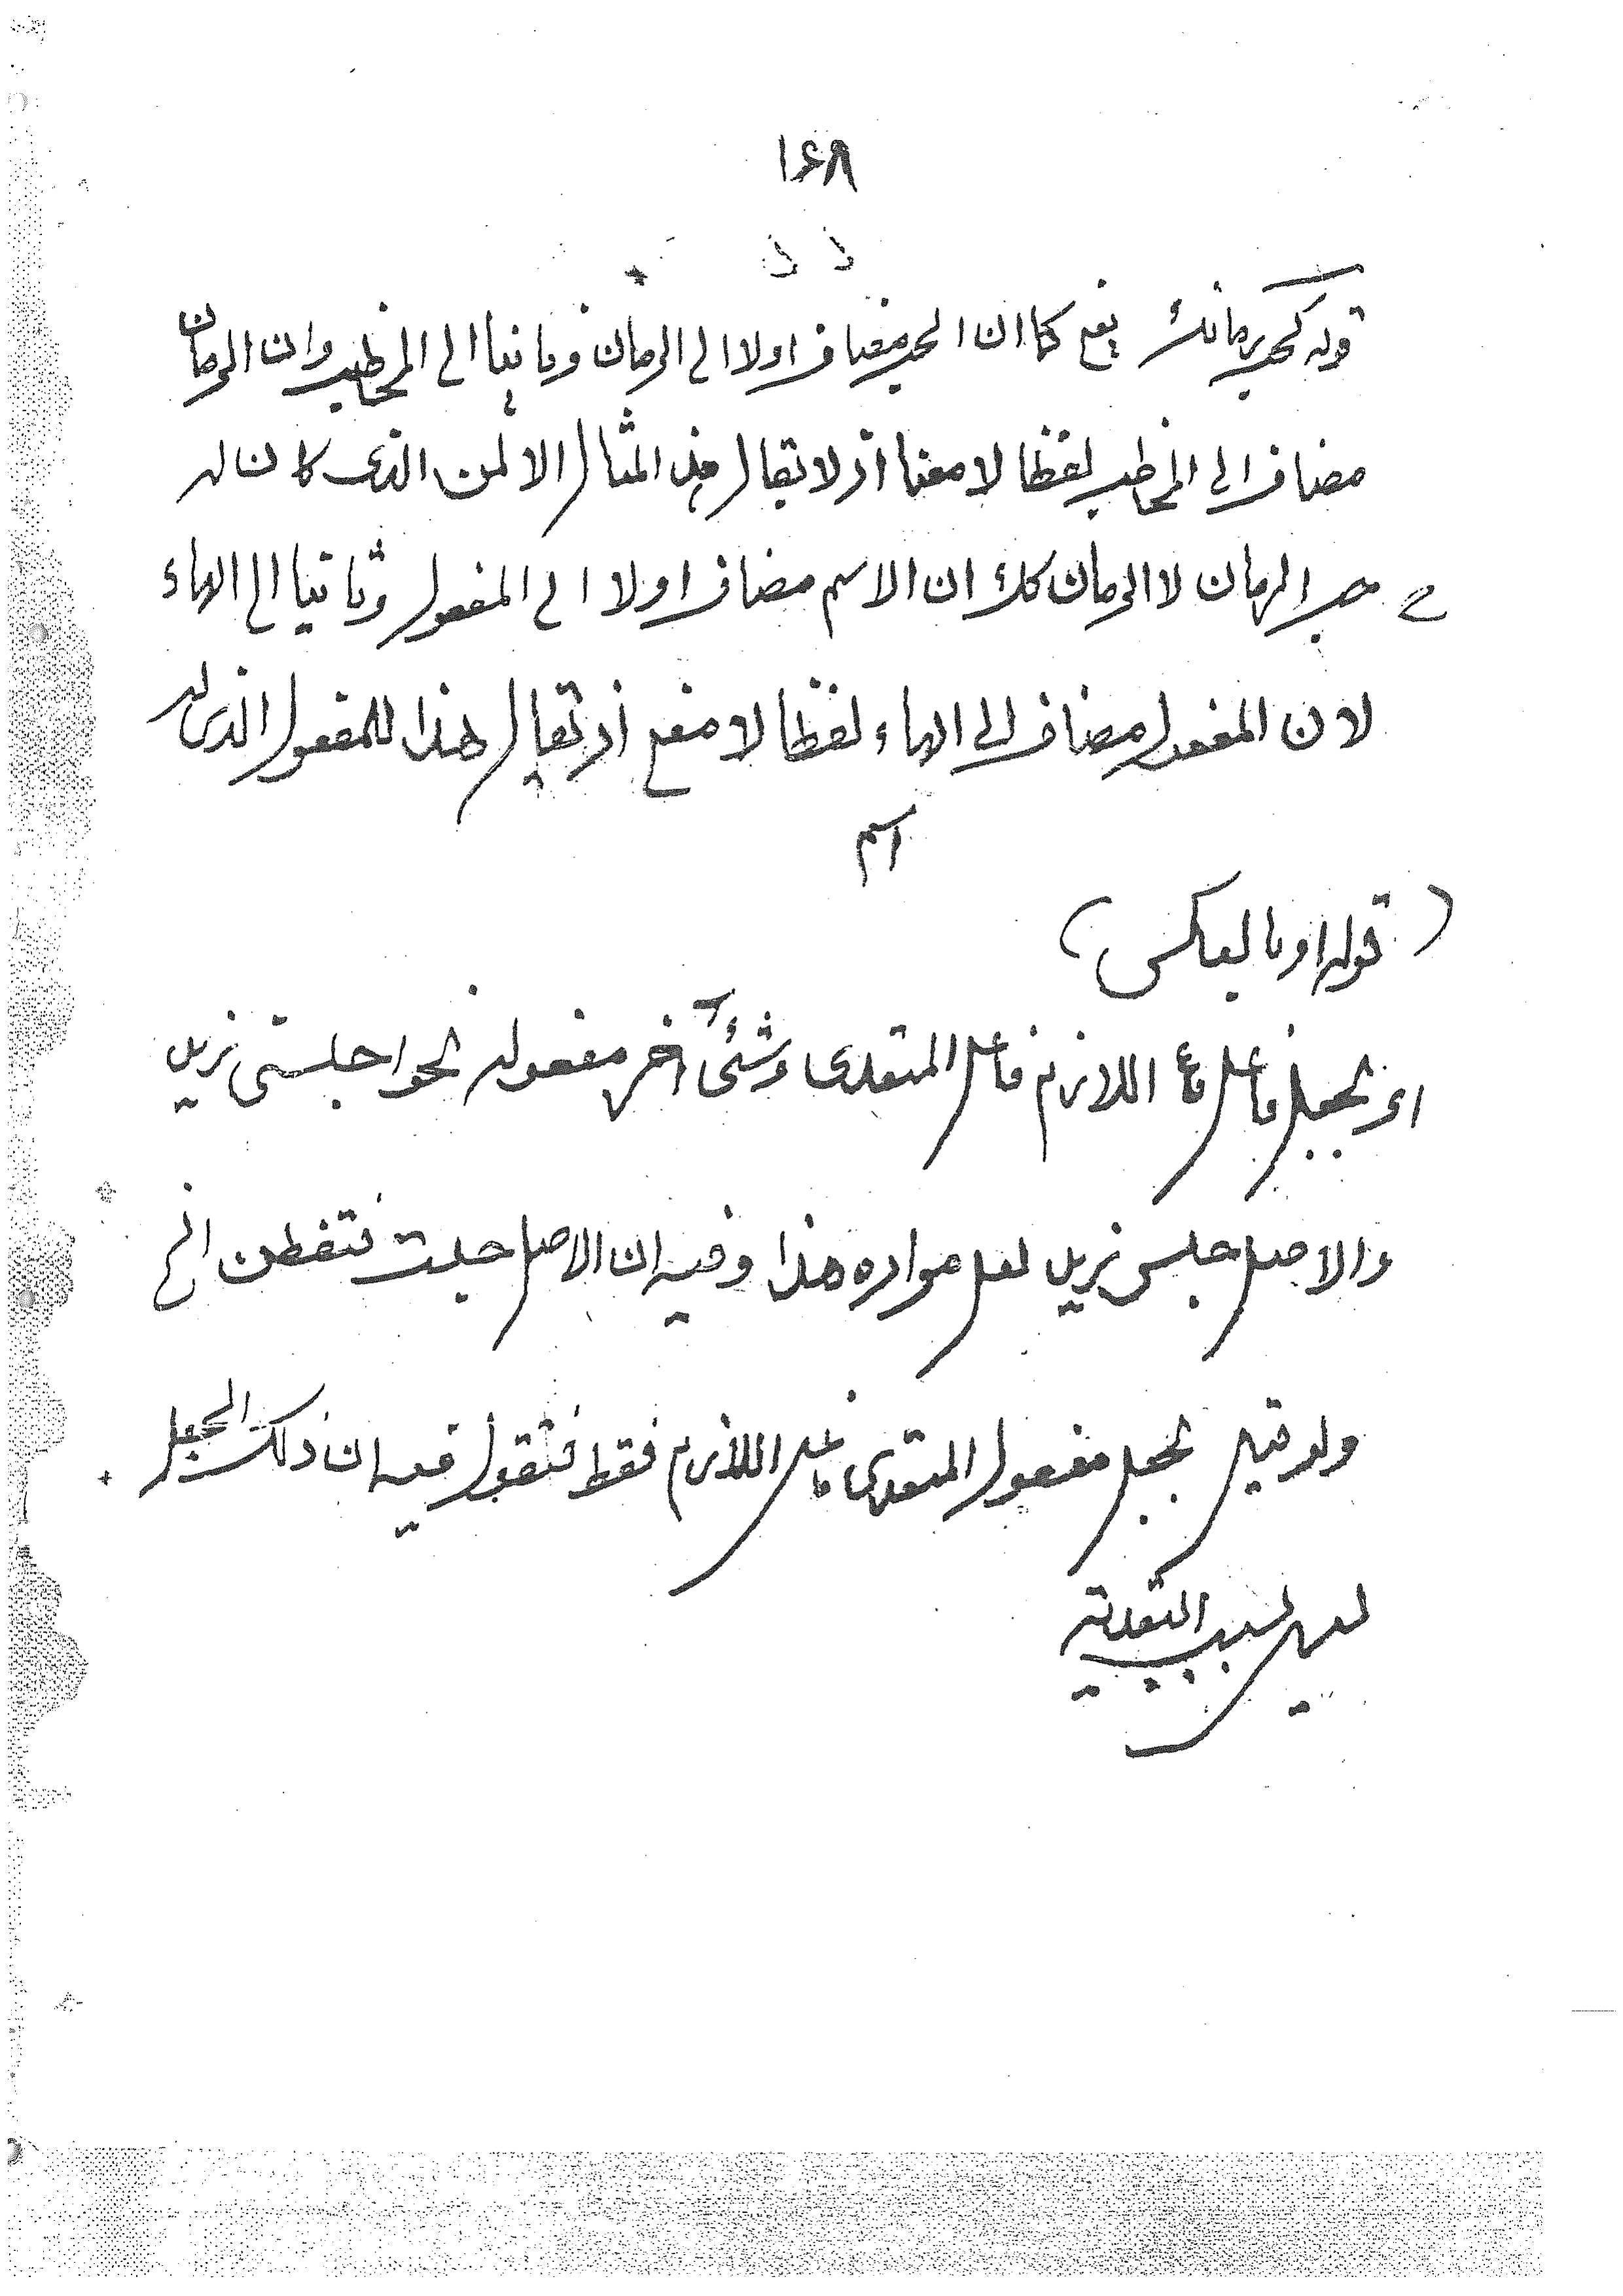 ١٤٨
قوله كحب رمانك يعنى كما ان الحب مضاف اولا الى الرمان وثانيا الى المخاطب وان الرمان
مضاف الى المخاطب لفظا لا معنا اذ لا يقال هذ المثال الا لمن الذى كان له
حب الرمان لا الرمان كك ان الاسم مضاف اولا الى المفعول وثانيا الى الهاء
لان المفعول مضاف الى الهاء لفظا لا معنى اذ يقال هذا للمفعول الذى له
اسم
(قوله او بالعكس)
اى بجعل فاعل اللازم فاعل المتعدى وشئ آخر مفعوله نحو اجلستى زيد
والاصل جلس زيد لعل مواده هذا وفيه ان الاصل جلست فتفطن انه
ولو قيل بجعل مفعول المتعدى فاعل اللازم فقط فتقول فيه ان ذلك الجعل
ليس لسبب التعدية